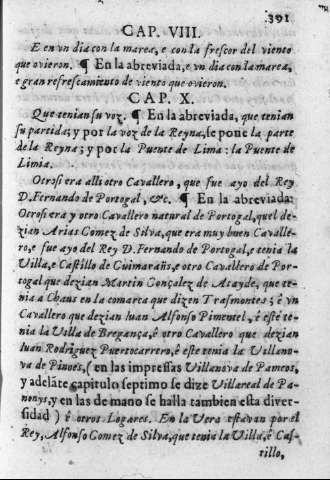 391
CAP. VIII.
E en vn dia con la marea, e con la frescor del viento
que ovieron. ¶ En la abreviada, e vn dia con la marea,
e gran refrescamiento de viento que ovieron.
CAP. X.
Que tenian su voz. ¶ En la abreviada, que tenian
su partida; y por la voz de la Reyna, le pone la parte
de la Reyna; y por la Puente de Lima: la Puente de
Limia.
Otrosi era alli otro Cavallero, que fue ayo del Rey
D. Fernando de Portogal, &c. ¶ En la abreviada:
Otrosi era y otro Cavallero natural de Portogal, quel de-
zian Arias Gomez de Silva, que era muy buen Cavalle-
ro, e fue ayo del Rey D. Fernando de Portogal, e tenia la
Villa, e Castillo de Guimarañs, e otro Cavallero de Por-
togal que dezian Martin Gonçalez de Atayde, que te-
nia a Chaus en la comarca que dizen Trasmontes; é vn
Cavallero que dezian Iuan Alfonso Pimentel, é este te-
nia la Villa de Bregança, é otro Cavallero que dezian
Iuan Rodriguez Puertocarrero, é este tenia la Villano-
va de Pinoes, (en las impressas Villanova de Pameos,
y adelãte capitulo septimo se dize Villareal de Pa-
nonys, y en las de mano se halla tambien esta diver-
sidad) é otros Logares. En la Vera estavan por el
Rey, Alfonso Gomez de Silva, que tenia la Villa, é Cas-
tillo,